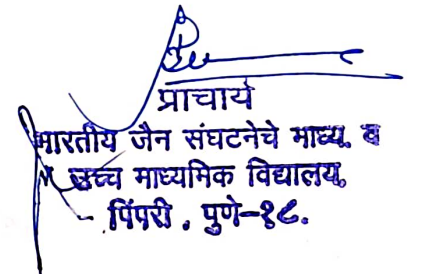 प्राचार्य
भारतीय जैन संघटनेचे माध्य. व
उच्च माध्यमिक विद्यालय,
पिंपरी . पुणे-१८.